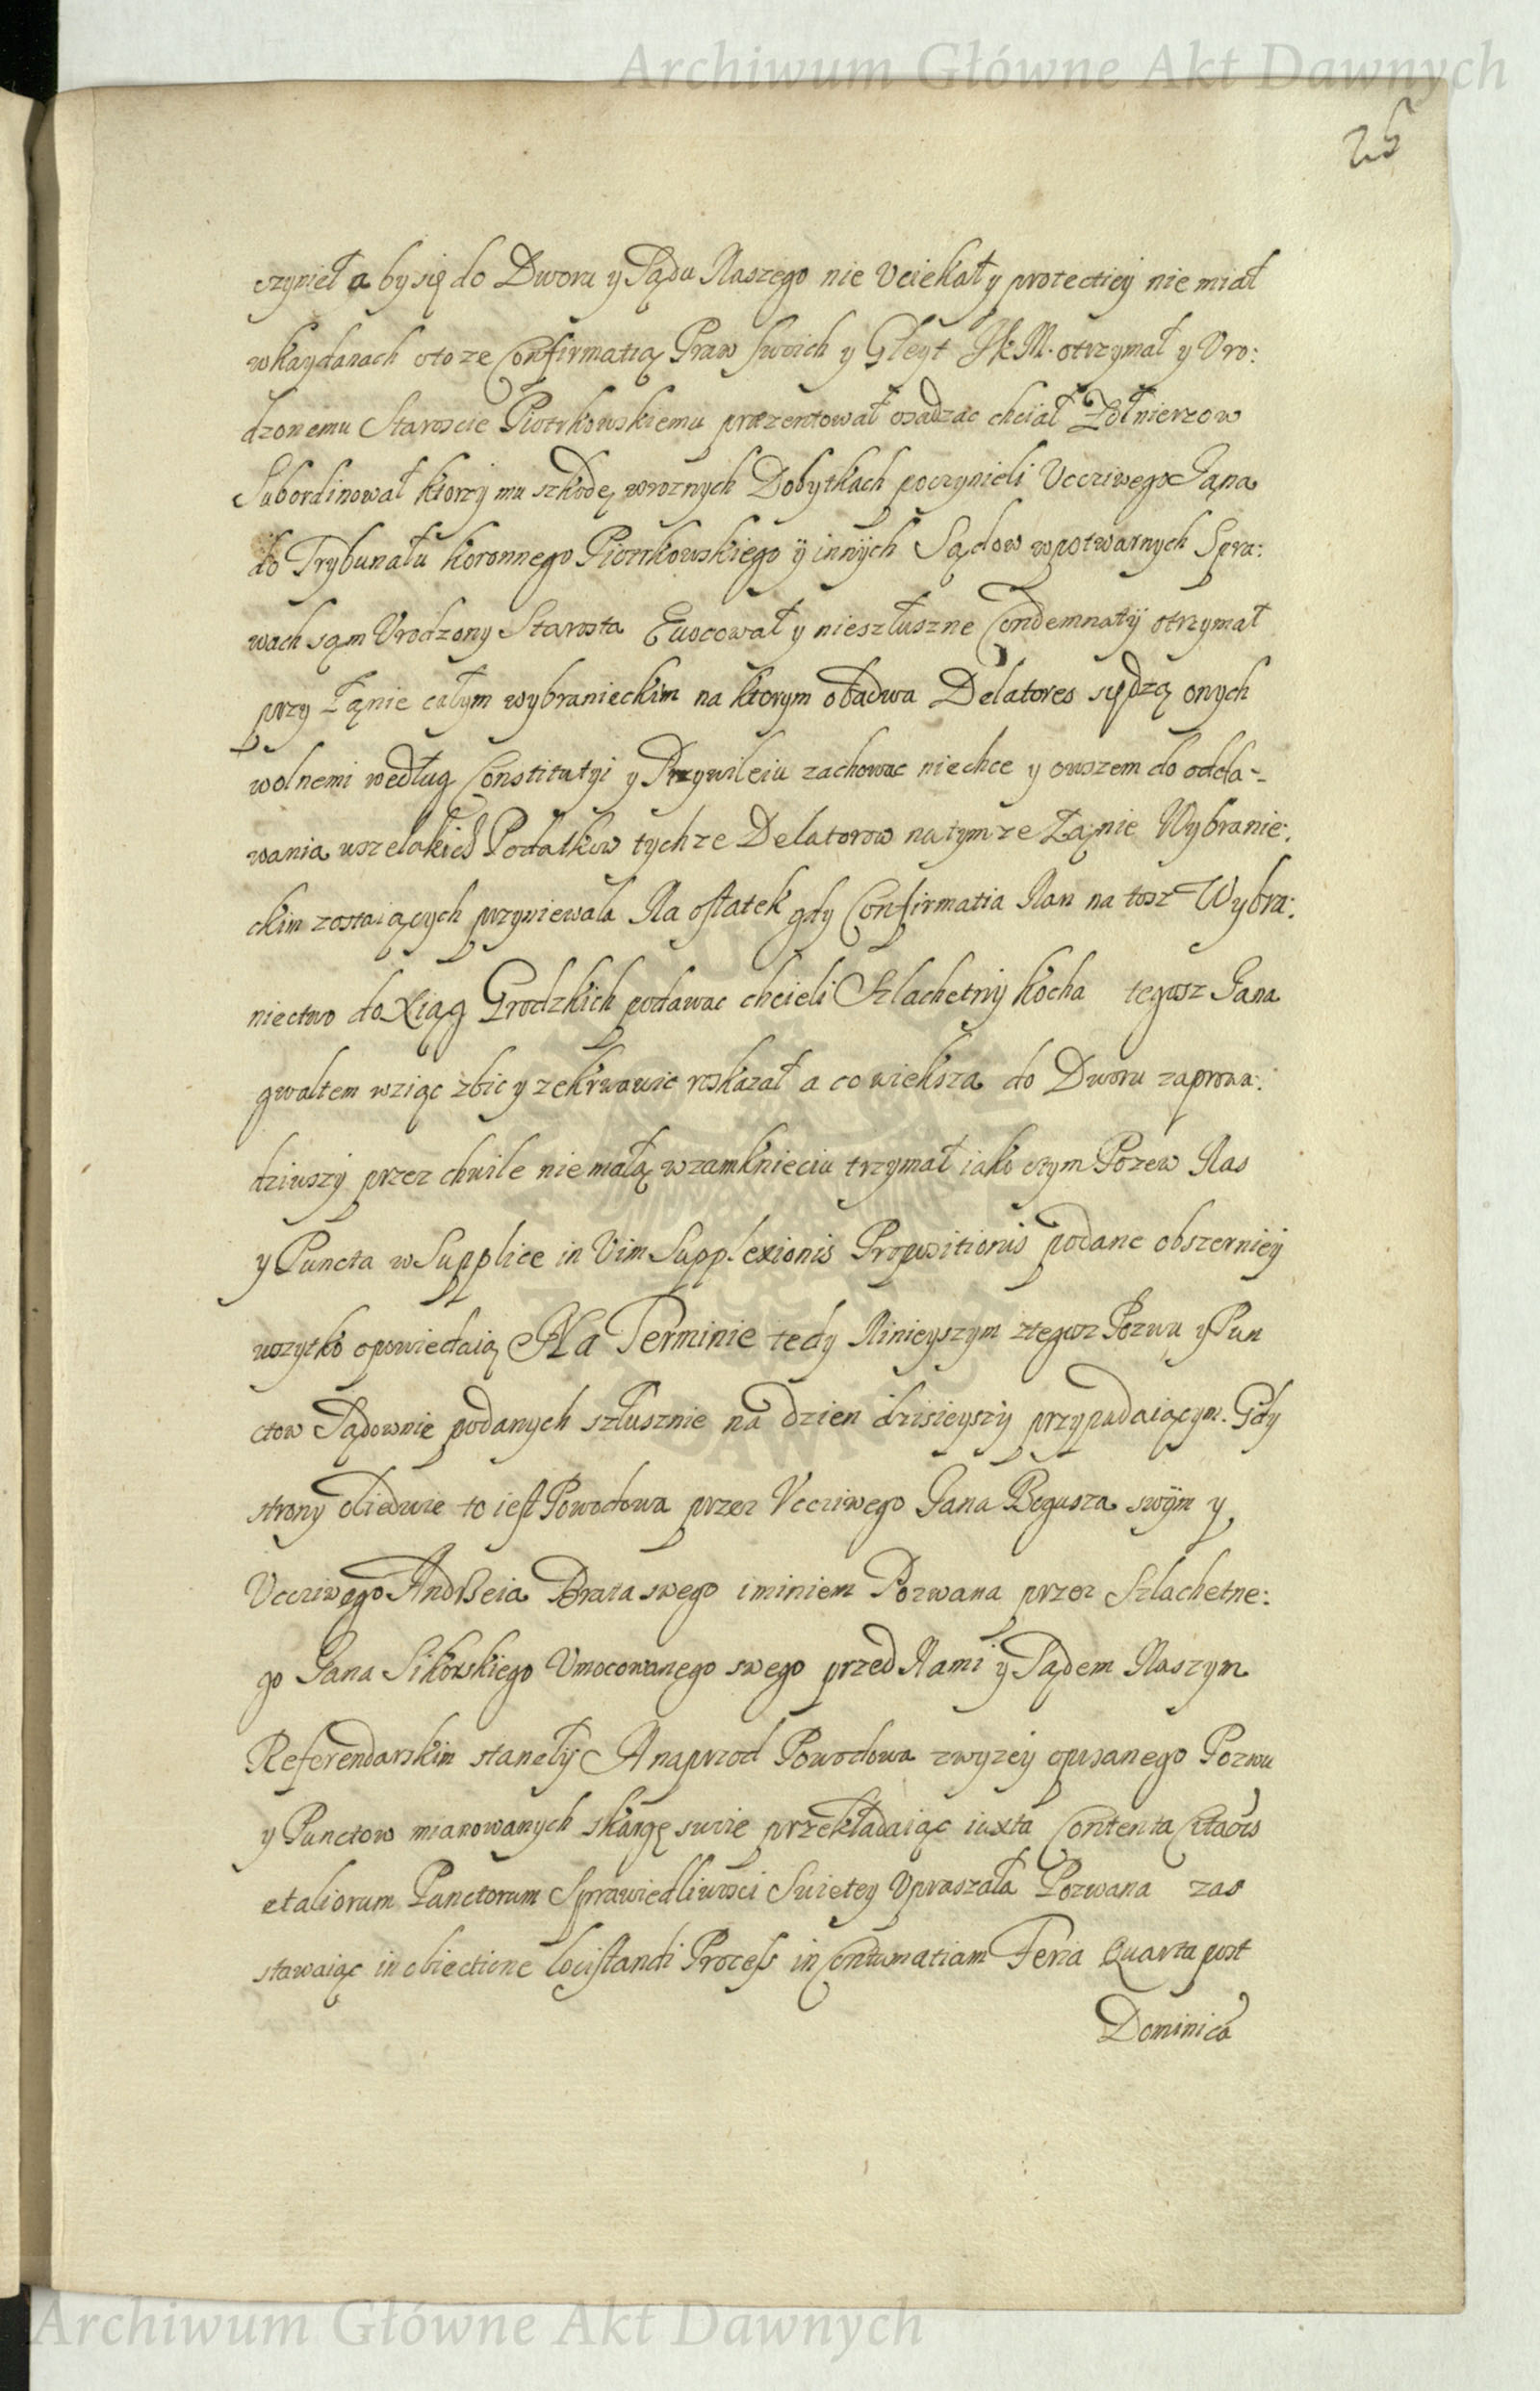 Archiwum Główne Akt Dawnych
25
czynieł aby się do Dworu y Sądu Naszego nie Uciekał y protectiey nie miał
w kaydanach oto ze Confirmatią Praw swoich y Gleyt JKM. otrzymał y Uro:
dzonemu Staroscie Piotrkowskiemu præzentował osadzac chciał Zołnierzow
Subordinował ktorzy mu szkodę w roznych Dobytkach poczynieli Uccziwego Jana
do Trybunału Koronnego Piotrkowskiego ÿ innÿch Sądow w potwarnych Spra:
wach sąm Urodzony Starosta Ewocował y niesłuszne Condemnatÿ otrzymał
przy Łąnie całym wybranieckim na ktorym obadwa Delatores siedzą onych
wolnemi według Constitutÿi y Przywileiu zachowac niechce y owszem do odda-
wania wszelakich Podatkow tychze Delatorow na tymze Łąnie Wybranie:
ckim zostaiących przyniewala Na ostatek gdy Confirmatia Nan na tosz Wybra:
niectwo do Xiąg Grodzkich podawac chcieli Szlachetny Kocha tegosz Jana
gwałtem wziąc zbic y zekrwawic roskazał a co wieksza do Dworu zaprowa:
dziwszy przez chwile nie małą w zamknieciu trzymał iako o tym Pozew Nas
y Puncta w Supplice in Vim Supplexionis Propositionis podane obszerniey
wszytko opowiedaią Na Terminie tedy Ninieyszym z tegosz Pozwu y Pun
ctow Sądownie podanych słusznie na dzien dzisieyszy przypadaiącym. Gdy
strony obiedwie to iest Powodowa przez Uccziwego Jana Bogusza swÿm y
Uccziwego Andrzeia Brata swego iminiem Pozwana przez Szlachetne:
go Jana Sikorskiego Umocowanego swego przed Nami y Sądem Naszym
Referendarskim staneły A naprzod Powodowa zwyzey opisanego Pozwu
y Punctow mianowanych skargę swoie przekładaiąc iuxta Contenta Citaõis
et aliorum Punctorum Sprawiedliwosci Swietey Upraszała Pozwana zas
stawaiąc in obiectione loci standi Process in Contumatiam Feria Quarta post
Dominicã
Archiwum Główne Akt Dawnych